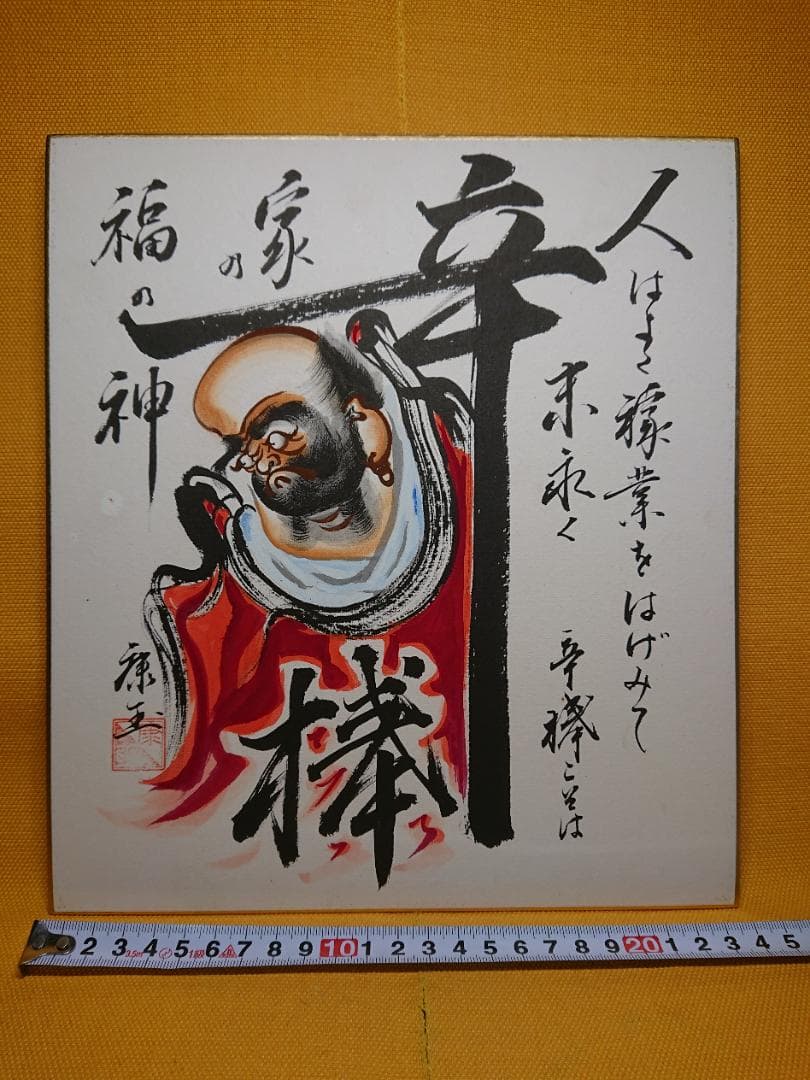 人は 稼業をはげみて
末永く
辛棒こそは
辛
棒
家の
福の神
康玉
2 3 3.5m 4 5 1級 6 7 8 9 10 1 2 3 4 5 6 7 8 9 20 1 2 3 4 5